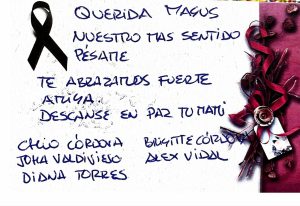 QUERIDA MAGUS
NUESTRO MAS SENTIDO
PÉSAME
TE ABRAZAMOS FUERTE
AMIGA
DESCANSE EN PAZ TU MAMI
CHIO CÓRDOVA BRIGITTE CÓRDOVA
JOHA VALDIVIESO ALEX VIDAL
DIANA TORRES